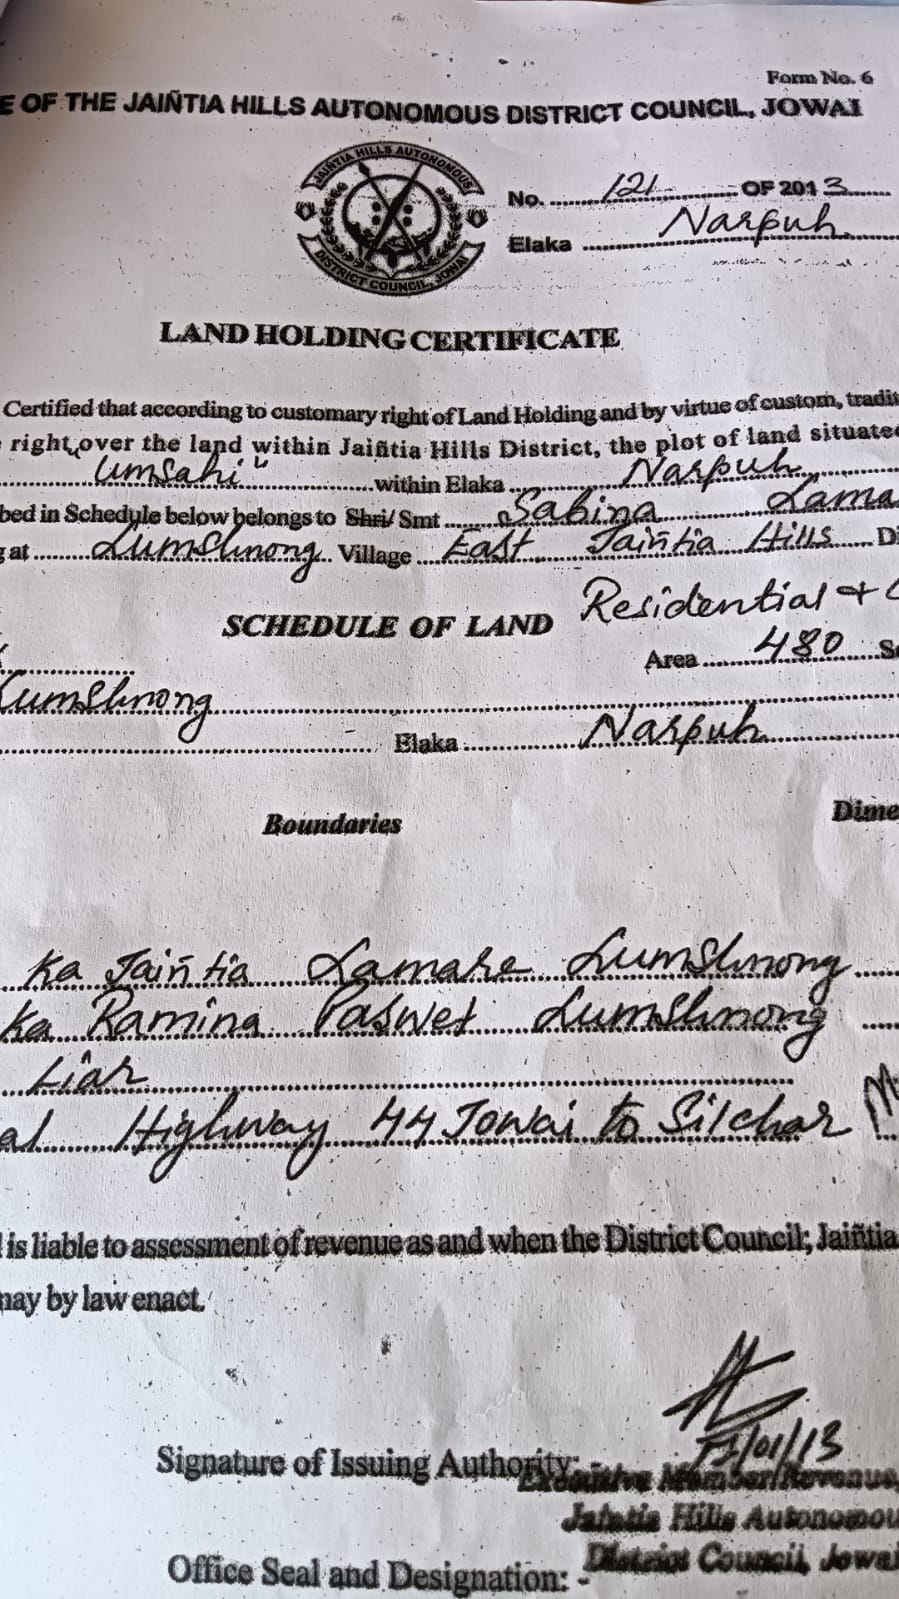 Form No. 6
E OF THE JAIÑTIA HILLS AUTONOMOUS DISTRICT COUNCIL, JOWAI
JAIÑTIA HILLS AUTONOMOUS
DISTRICT COUNCIL, JOWAI
No. 121 OF 2013
Elaka Narpuh
LAND HOLDING CERTIFICATE
Certified that according to customary right of Land Holding and by virtue of custom, tradit
right over the land within Jaiñtia Hills District, the plot of land situated
"Umsahi" within Elaka Narpuh
bed in Schedule below belongs to Shri/ Smt Sabina Lama
g at Lumshnong Village East Jaiñtia Hills Di
SCHEDULE OF LAND Residential + C
Area 480 S
Lumshnong
Elaka Narpuh
Boundaries Dime
Ka Jaiñtia Lamare Lumshnong
Ka Ramina Paswet Lumshnong
Liar
al Highway 44 Jowai to Silchar M
is liable to assessment of revenue as and when the District Council; Jaiñtia
may by law enact.
/01/13
Signature of Issuing Authority: -
Executive Member Revenue,
Jaintia Hills Autonomou
District Council, Jowai
Office Seal and Designation: -